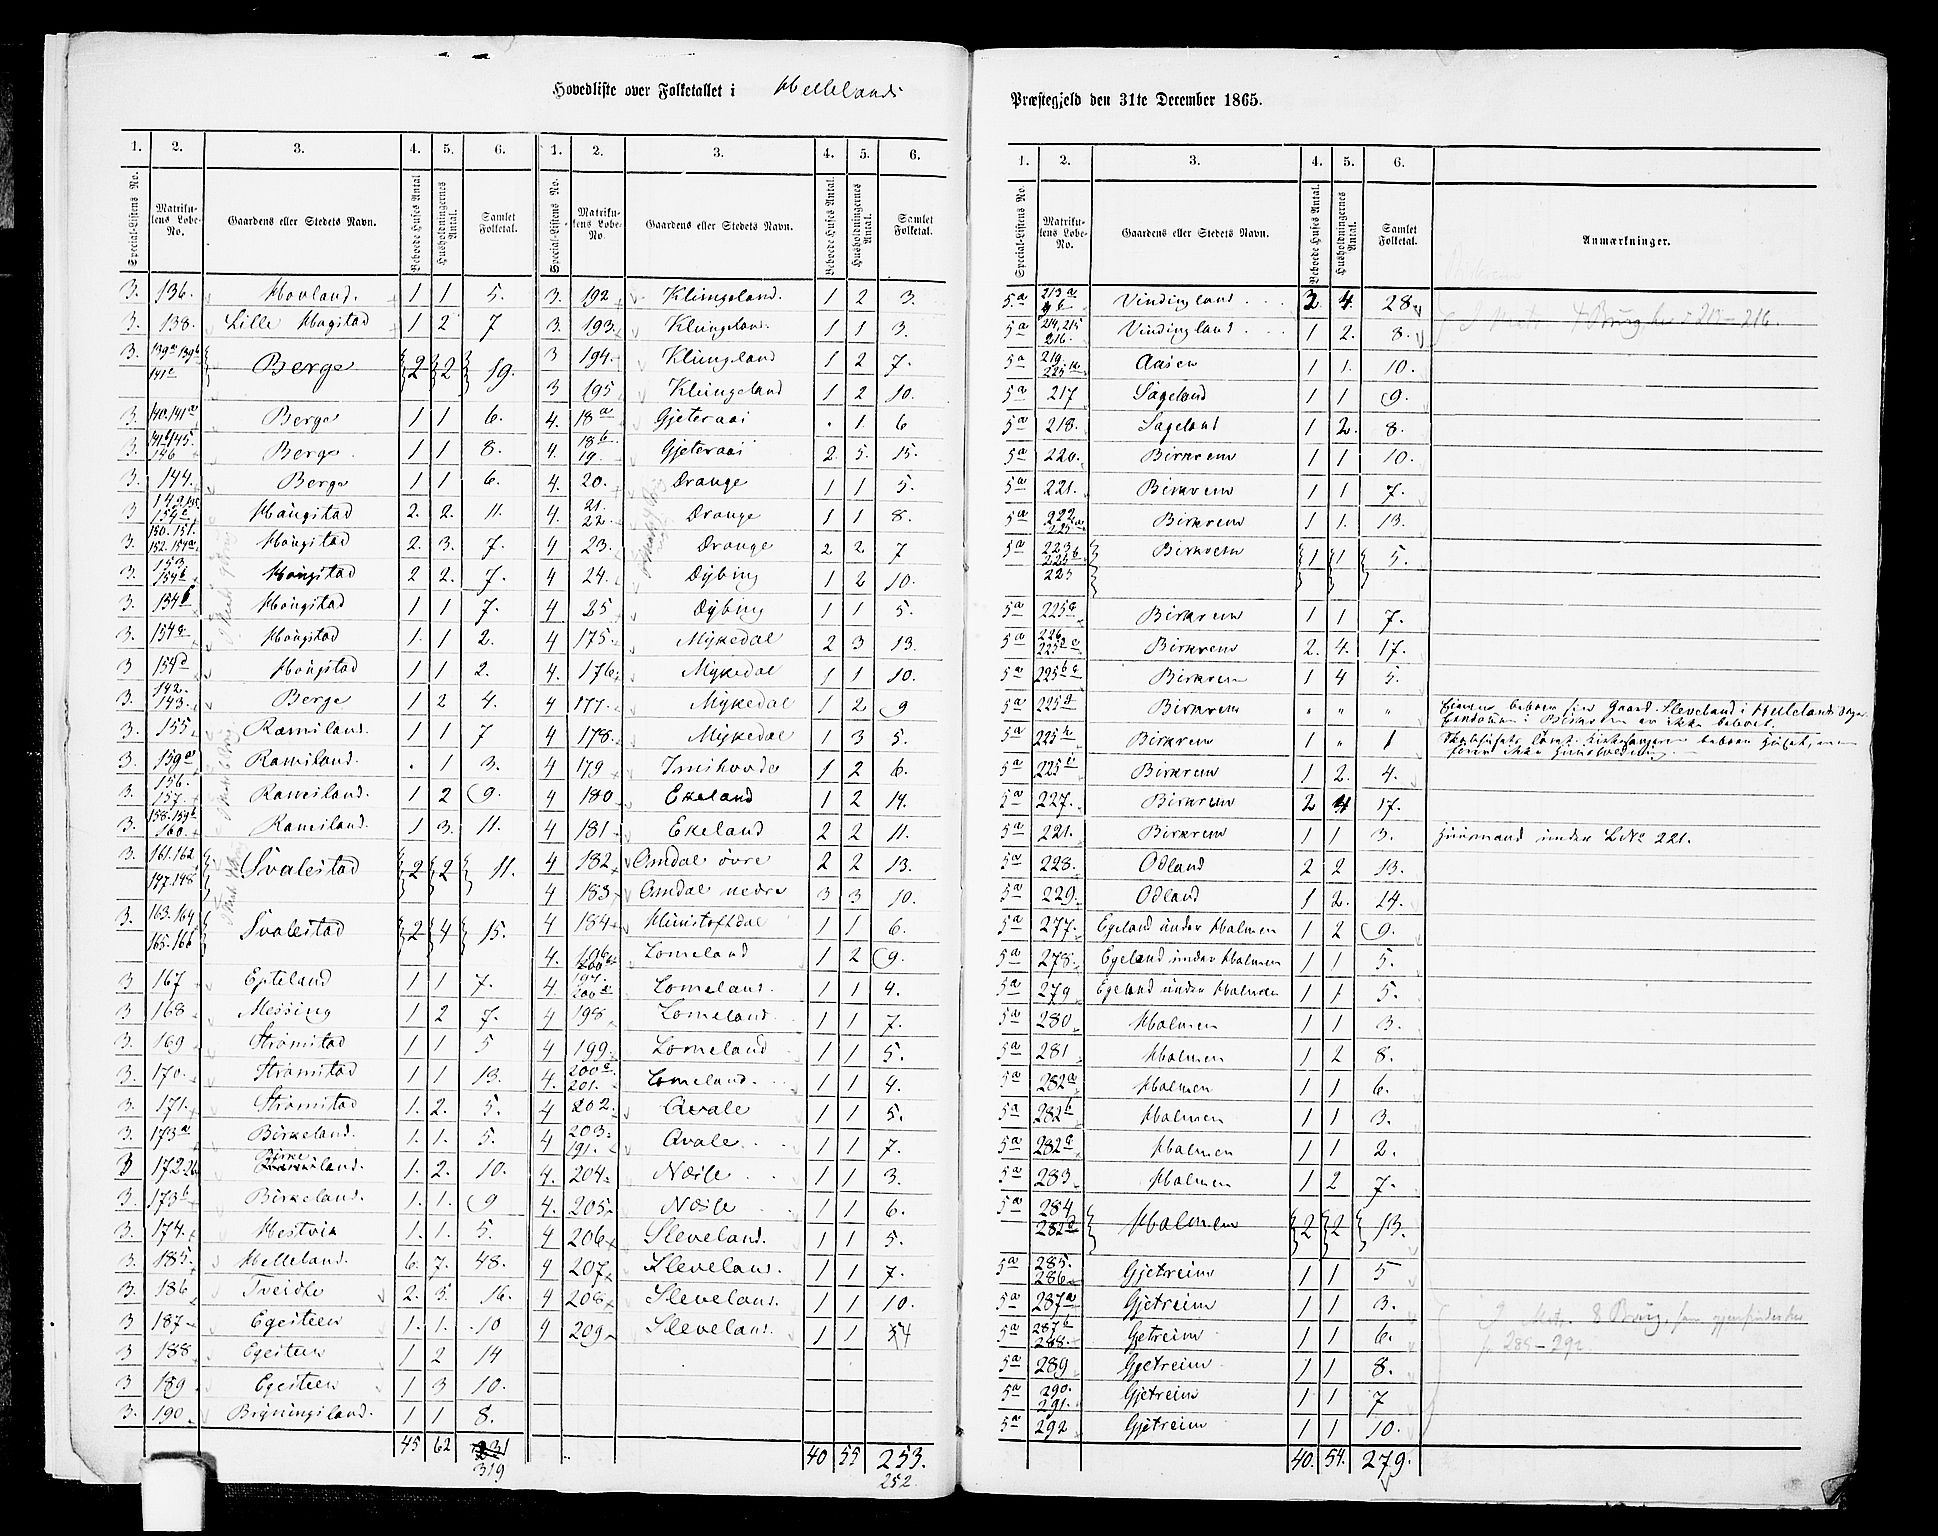 Hovedliste over Folketallet i Hellelands
Præstegjeld den 31te December 1865.
1. 2. 3. 4. 5. 6. 1. 2. 3. 4. 5. 6.
Special-Listens No. Matrikulens Løbe-No. Gaardens eller Stedets Navn. Beboede Huses Antal Husholdningernes Antal. Samlet Folketal. Special-Listens No. Matrikulens Løbe-No. Gaardens eller Stedets Navn. Beboede Huses Antal. Husholdningernes Antal. Samlet Folketal.
3. 136. Hovland. 1 1 5.
3. 138. Lille Hagstad 1 2 7
3. 139a 139b 141c Berge 2 2 19.
3. 140. 141a Berge 1 1 6.
3. 145. 146 Berge 1 1 8.
3. 144. Berge 1 1 6.
3 149 154e Haugstad 2. 2. 11.
3. 150. 151. 152. 154a Haugstad 2. 3. 7.
3. 153. 154b Haugstad 2 2. 7.
3. 154b Haugstad 1 1 7.
3. 154c Haugstad 1. 1 2.
3 154d Haugstad 1 1 2.
3. 142. 143. Berge 1 2 4.
3. 155 Ramsland. 1 1 7
3. 159a Ramsland. . 1 3.
3. 156. 157. Ramsland. 1 2 9.
3. 158. 159b 160. Ramsland. 1 3. 11.
3. 161. 162 147. 148 Svalestad 2 2 11.
3. 163. 164 165. 166 Svalestad 2 4 15.
3 167 Epteland 1 1 7.
3 168 Messing 1 2 7.
3. 169 Strømstad 1 1 5
3. 170. Strømstad 1 1 13.
3. 171. Strømstad 1. 2. 5.
3. 173a Birkeland. 1. 1. 5.
3 172 Birkeland. 1. 2. 10.
3. 173b Birkeland. 1. 1. 9
3. 174. Hestvik 1. 1. 5.
3. 185. Helleland 6. 7. 48.
3. 186 Tveidle 2. 5. 16.
3. 187 Egesteen 1. 1. 10
3 188. Egesteen 1 2 14
3 189 Egesteen 1 3 10.
3. 190. Bigningsland. 1 1 8.
45 62 319
3. 192 Klungeland. 1 2 3.
3. 193. Klungeland. 1 1 3.
3 194. Klungland 1 2 7.
3 195 Klungeland 1 2 10.
4. 18a Gjeteraai . 1. 6
4. 18b 19. Gjeteraai 2. 5. 15.
4. 20. Drange 1 1 5.
4. 21. 22. Drange 1 1 8.
4 23. Drange 2 2 7
4 24. Dybing 1 2 10.
4 25 Dybing 1 1 5.
4 175 Mykedal 2 3 13.
4. 176. Mykedal 1 1 10.
4 177. Mykedal 1 2 9
4 178. Mykedal 1 3 5.
4 179 Imihovde 1 2 6.
4 180 Ekeland 1 2 14.
4 181 Ekeland 2 2 11.
4 182 Omdal øvre 2 2 13.
4 183 Omdal nedre 3 3 10.
4 184 1 1 6.
4. 196 200 Lomeland 1 2 9.
4. 197. 200 Lomeland. 1 1 4.
4 198 Lomeland. 1 1 7.
4 199. Lomeland 1 1 5.
4. 200c 201. Lomeland. 1 1 4.
4 202. Qvale 1 1 5.
4 203. 191. Qvale 1 1 7.
4. 204. Nøsle 1 1 3.
4. 205 Nøsle 1 1 6.
4 206 Sleveland. 1 1 5.
4 207 Sleveland. 1 1 7.
4 208 Sleveland. 1 1 10.
4 209 Sleveland. 1 1
40 55 253.
252.
1. 2. 3. 4. 5. 6.
Special-Listens No. Matrikulens Løbe-No. Gaardens eller Stedets Navn. Beboede Huses Antal. Husholdningernes Antal. Samlet Folketal. Anmærkninger.
5a 213a Vindingland 4. 28
5a 214, 215 216. Vindingland 1 2. 8.
5a 219. 225k Aasen 1 1. 10.
5a 217 Sageland 1 1 9.
5a 218. Sageland 1 2. 8.
5a 220. Birkrem 1 1 10.
5a 221. Birkrem 1 1 7.
5a 222 Birkrem 1 1. 13.
5a 223b 225b 223 Birkrem 1 1 5.
5a 225c Birkrem 1 1 7.
5a 226. 225e Birkrem 2. 4. 17.
5a 225 Birkrem 1 4 5.
5a 225g Birkrem " " " Eieren beboer sin Gaard Sleveland i Hellelands Sogn
Eiendommen i Birkrem er ikke beboet.
5a 225h Birkrem 1 " 1
5a 225i Birkrem 1 2. 4.
5a 227. Birkrem 2 4 17.
5a 221. Birkrem 1 1 3. Huusmand under LNo 221.
5a 228. Odland 2 2 13.
5a 229. Odland 1 2. 14.
5a 277. Egeland under Holmen 1 2 9.
5a 278. Egeland under Holmen 1 1 5.
5a 279 Egeland under Holmen 1 1 5.
5a 280 Holmen 1 1 3.
5a 281 Holmen 1 2 8.
5a 282a Holmen 1 1 6.
5a 282b Holmen 1 1 3.
5a 282c Holmen 1 1 2.
5a 283 Holmen 1 2 7.
5a 284 282d Holmen 2 2 13.
5a 285. 286 Gjetreim 1 1 5
5a 287a Gjetreim 1 1 3.
5a 287b 288. Gjetreim 1 1 6.
5a 289 Gjetreim 1 1 8.
5a 290. 291. Gjetreim 1 1 7
5a 292 Gjetreim 1 1 10.
40. 54. 279.